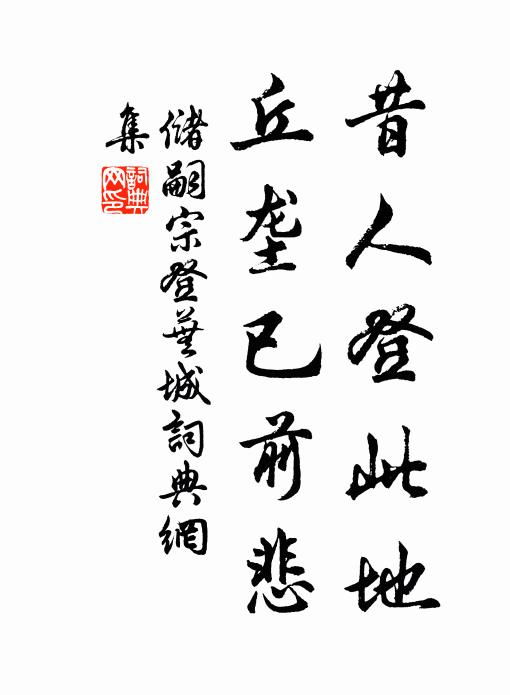 昔人登此地
丘垄已前悲
儲嗣宗登蕪城詞典網
集
詞典网印